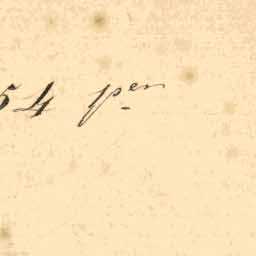 54 pen